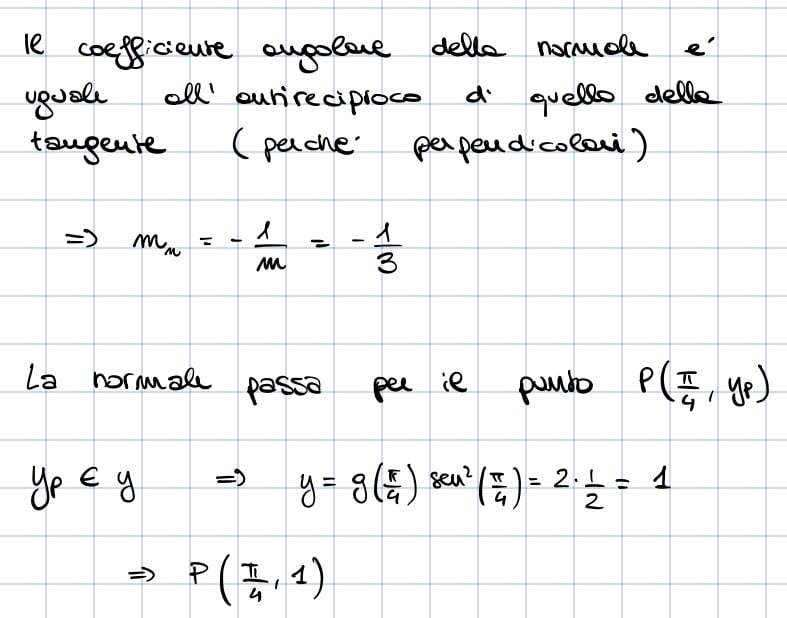 Il coefficiente angolare della normale e'
uguale all' antireciproco di quello della
tangente (perche' perpendicolari)
=> m_n = - 1/m = - 1/3
La normale passa per il punto P(π/4, y_P)
y_P ∈ y => y = g(π/4) sen²(π/4) = 2 · 1/2 = 1
=> P(π/4, 1)